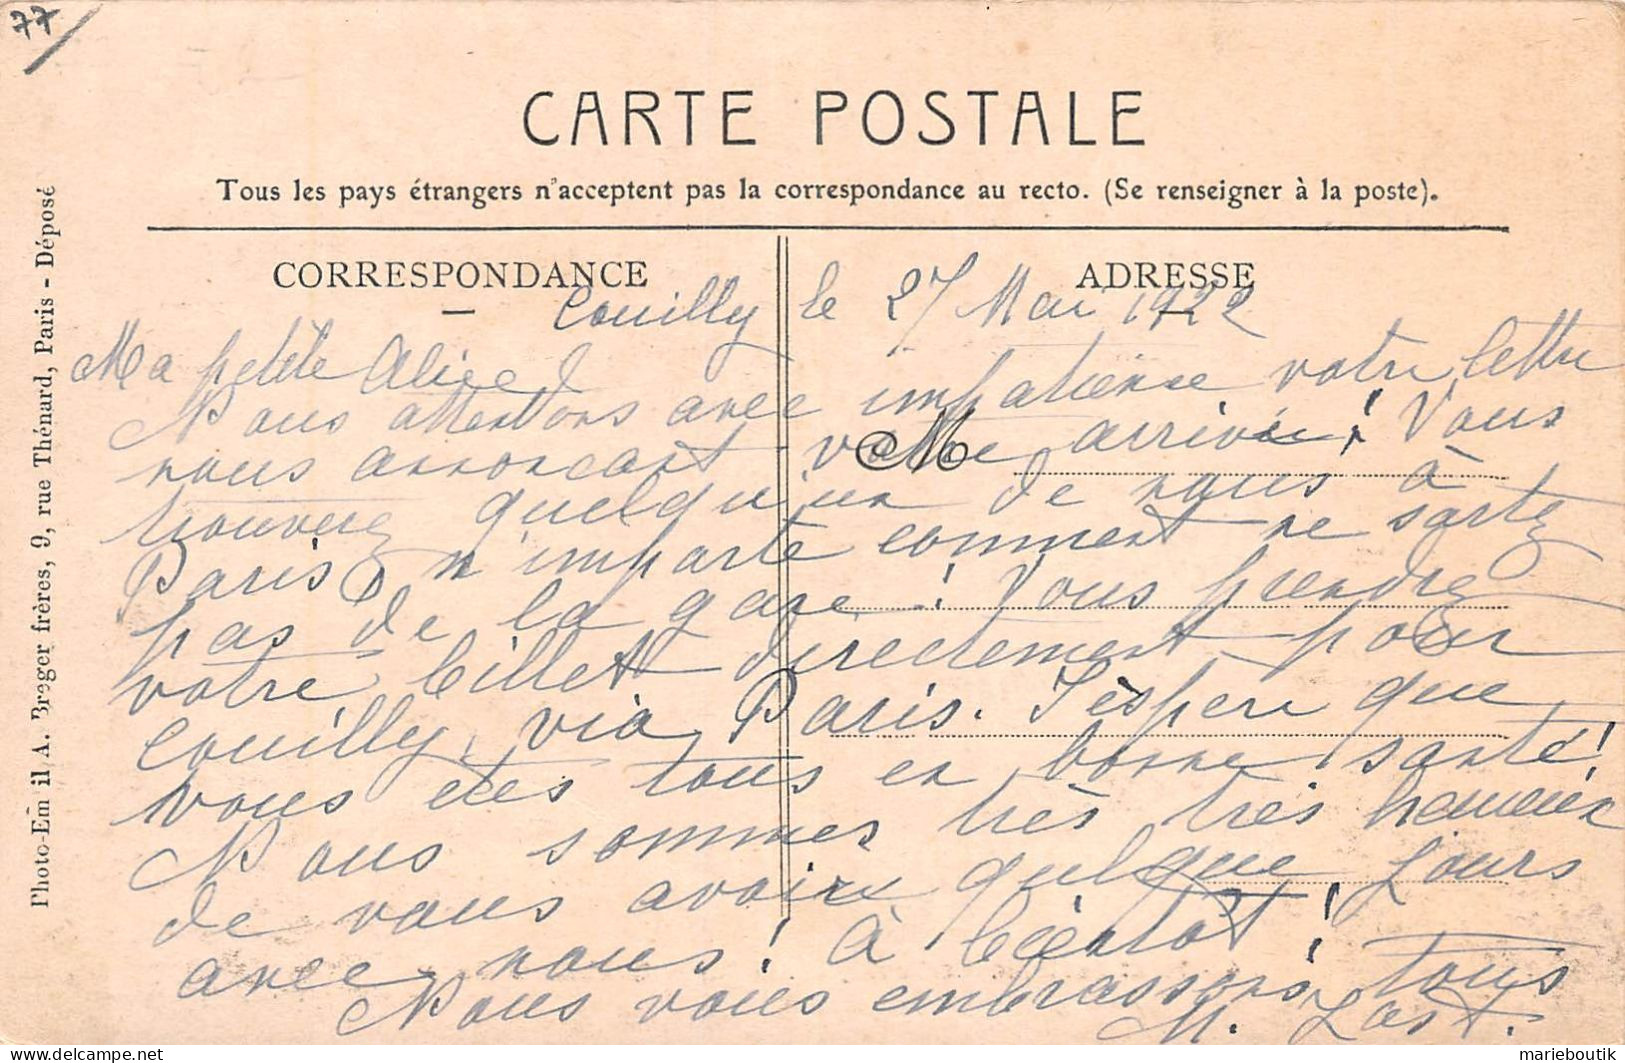 77
CARTE POSTALE
Tous les pays étrangers n'acceptent pas la correspondance au recto. (Se renseigner à la poste).
CORRESPONDANCE
ADRESSE
Couilly le 27 Mai 1922
Ma petite Alice
Nous attendons avec impatience votre lettre
nous annonçant votre arrivée! Vous
trouverez quelqu'un de nous à
Paris, n'importe comment ne sortez
pas de la gare! Vous prendrez
votre billet directement pour
Couilly, via Paris. J'espère que
vous êtes tous en bonne santé!
Nous sommes très très heureux
de vous avoire quelque Jours
avec nous! à bientôt!
Nous vous embrassons tous
M.
M
Photo-Em il A. Breger frères, 9, rue Thénard, Paris - Déposé
marieboutik